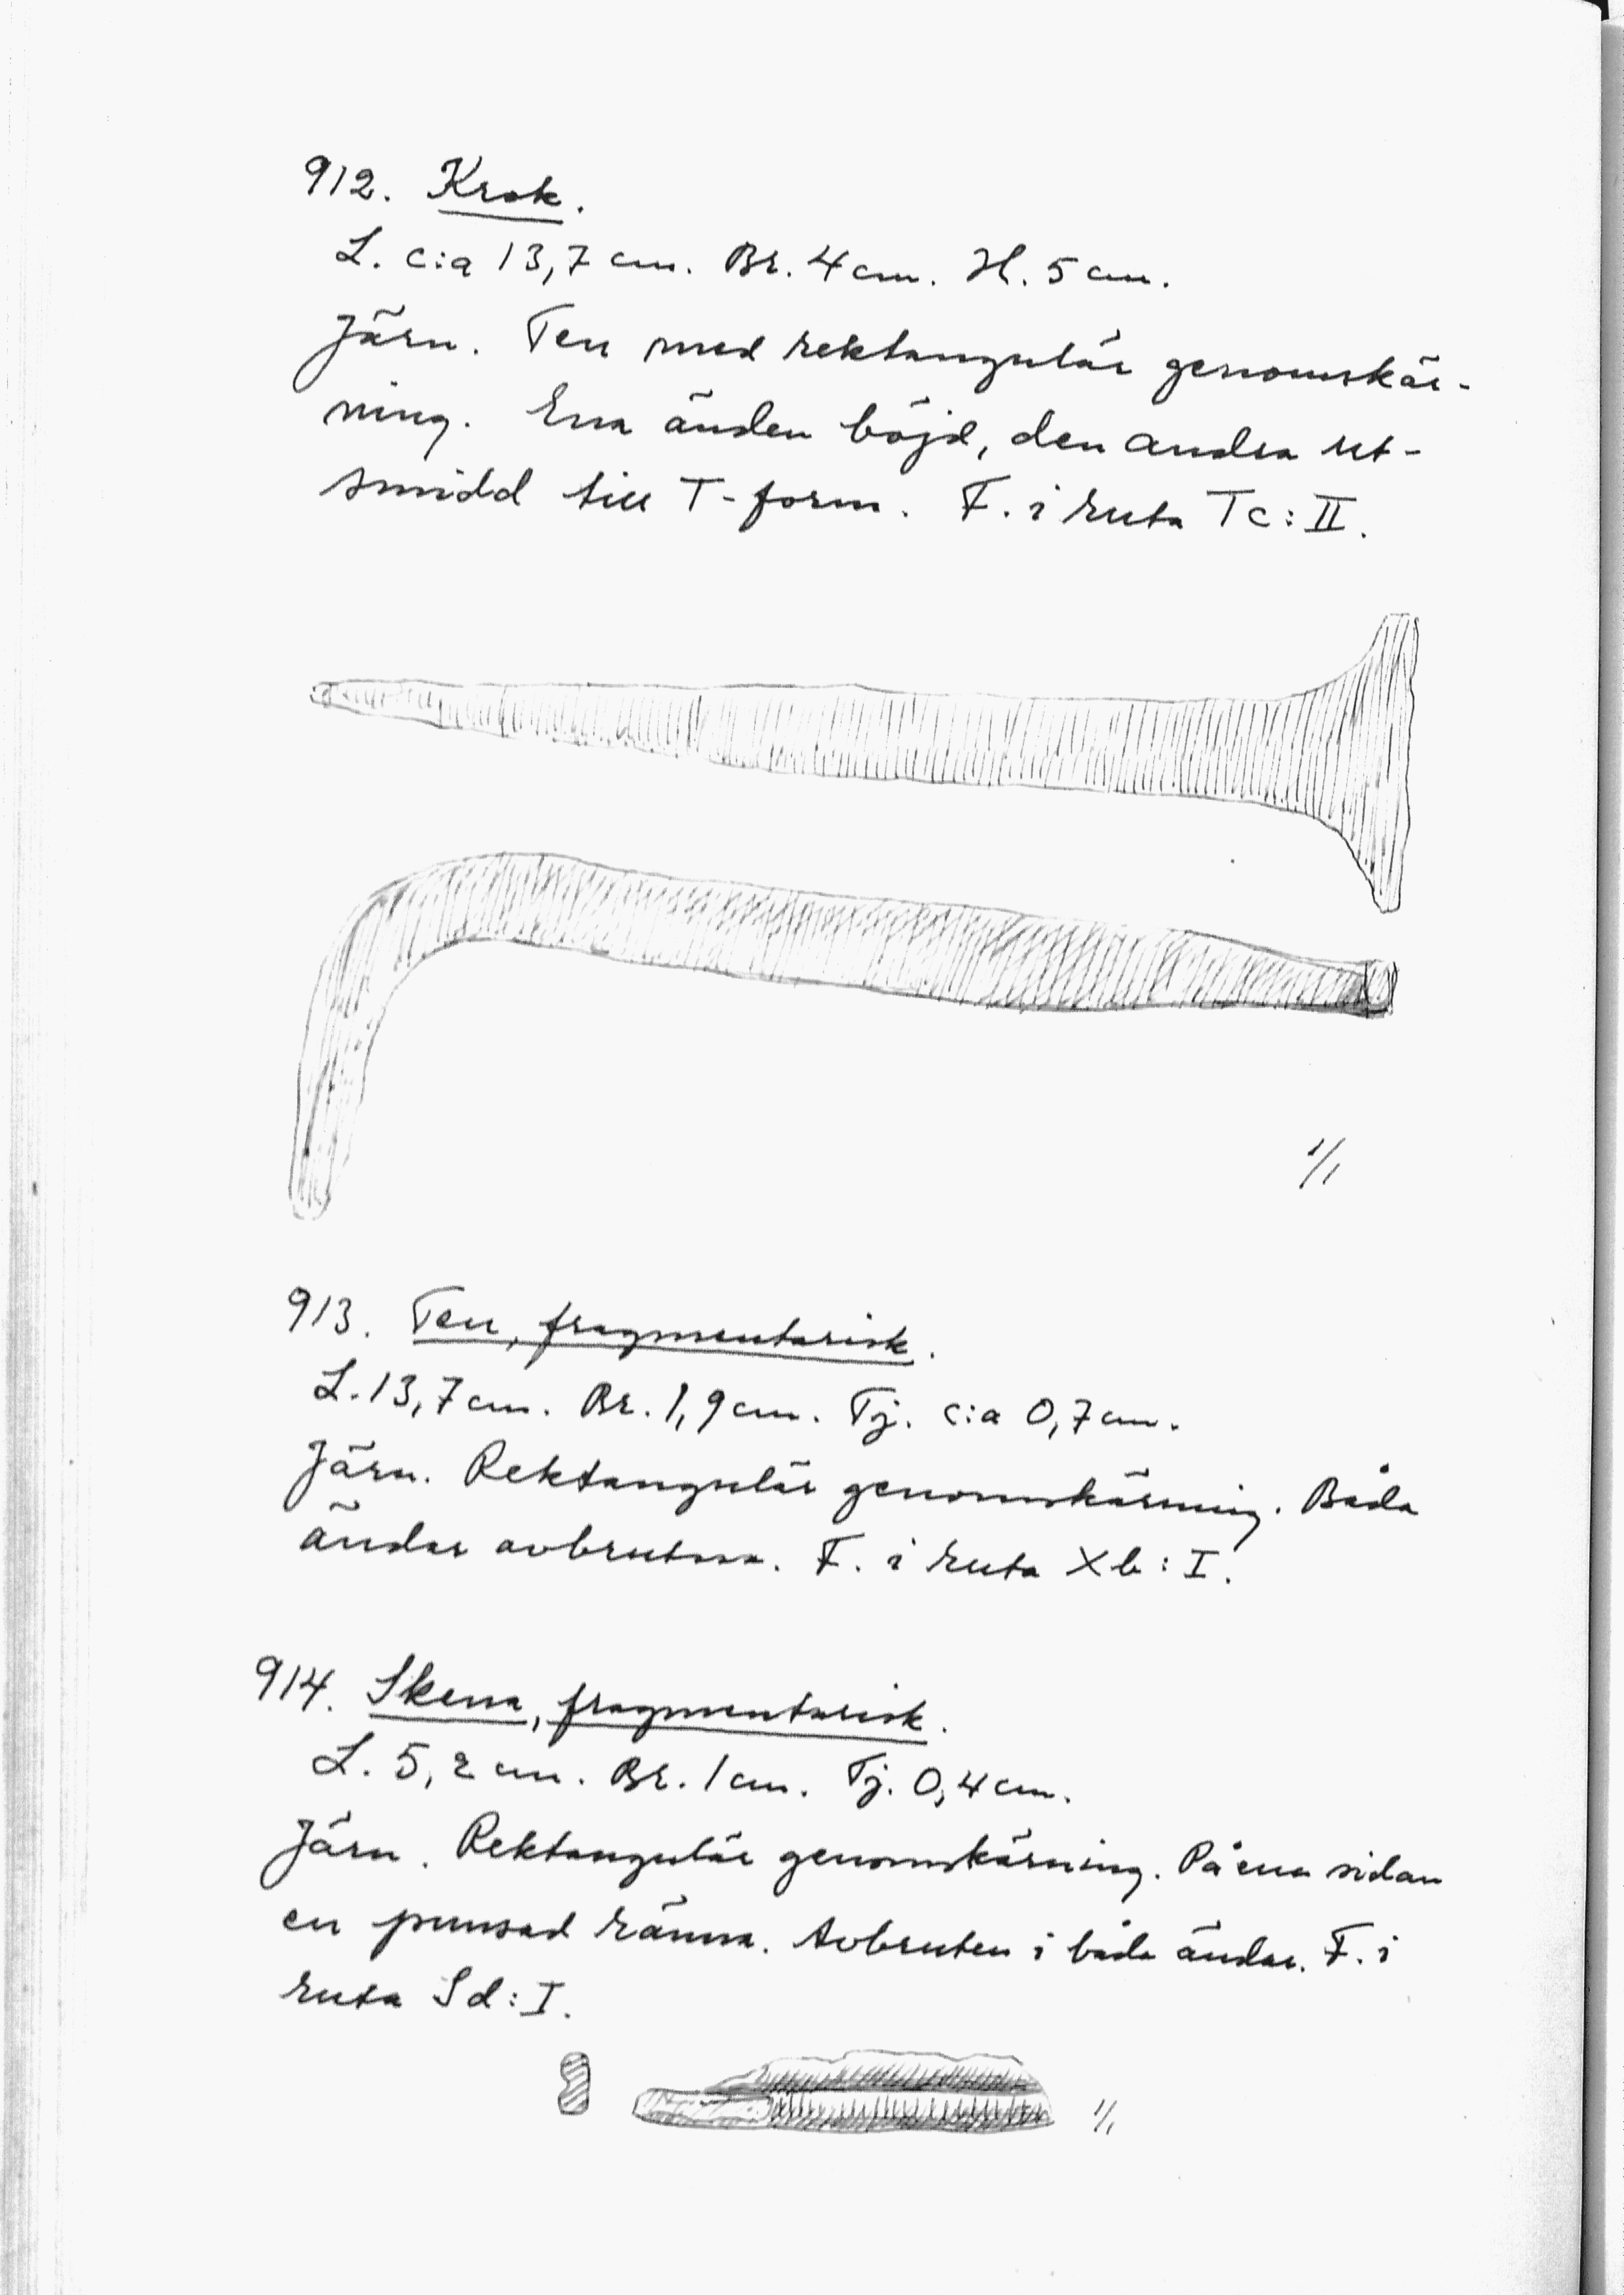 912. Krok.
L. c:a 13,7 cm. Br. 4 cm. H. 5 cm.
Järn. Ten med rektangulär genomskär-
ning. Ena änden böjd, den andra ut-
smidd till T-form. F. i ruta Tc:II.
1/1
913. Ten, fragmentarisk.
L. 13,7 cm. Br. 1,9 cm. Tj. c:a 0,7 cm.
Järn. Rektangulär genomskärning. Båda
ändar avbrutna. F. i ruta Xb:I.
914. Skena, fragmentarisk.
L. 5,2 cm. Br. 1 cm. Tj. 0,4 cm.
Järn. Rektangulär genomskärning. På ena sidan
en punsad ränna. Avbruten i båda ändar. F. i
ruta Sd:I.
1/1